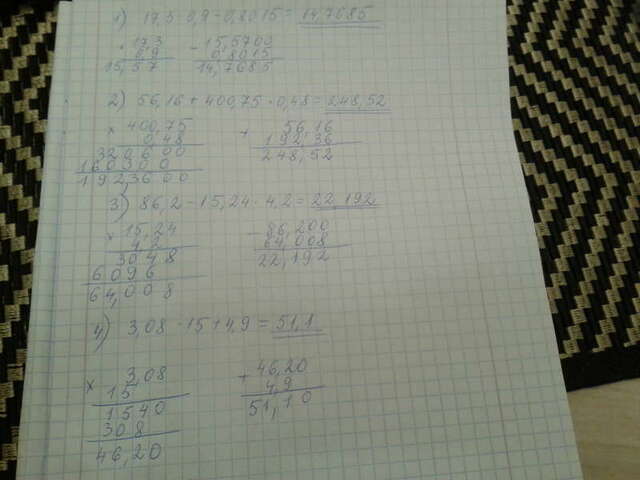 1) 17,3 · 0,9 - 0,8015 = 14,7685
× 17,3 - 15,5700
0,9 0,8015
15,57 14,7685
2) 56,16 + 400,75 · 0,48 = 248,52
× 400,75 + 56,16
0,48 192,36
320600 248,52
160300
1923600
3) 86,2 - 15,24 · 4,2 = 22,192
× 15,24 - 86,200
4,2 64,008
3048 22,192
6096
64,008
4) 3,08 · 15 + 4,9 = 51,1
× 3,08 + 46,20
15 4,9
1540 51,10
308
46,20